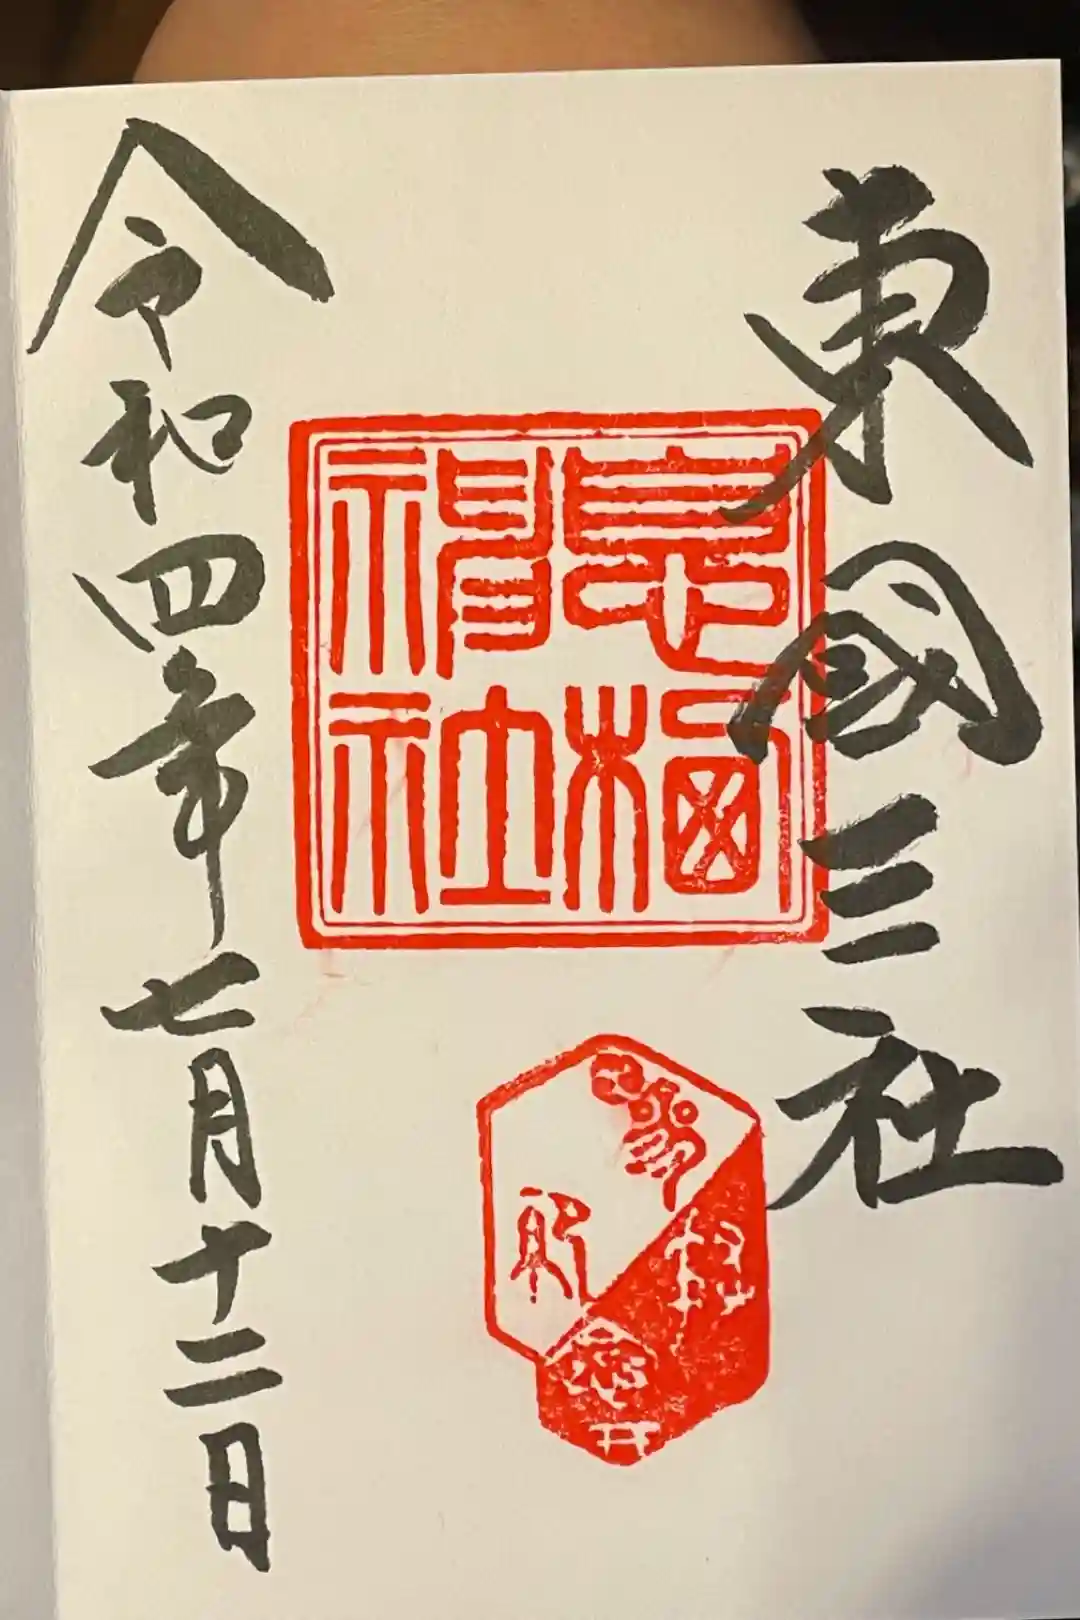 東國三社
息栖
神社
令和四年七月十二日